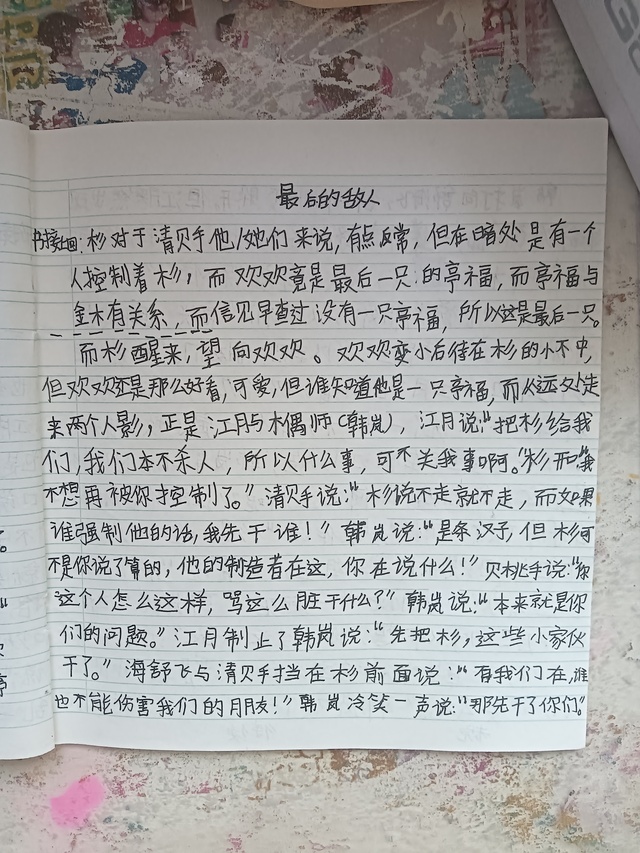 最后的敌人
书接上回：杉对于清贝手他/她们来说，有点反常，但在暗处是有一个
人控制着杉，而欢欢竟是最后一只的亭福，而亭福与
金木有关系，而信见早查过没有一只亭福，所以这是最后一只。
而杉醒来，望向欢欢。欢欢变小后待在杉的小不中，
但欢欢还是那么好看，可爱，但谁知道他是一只亭福，而从远处走
来两个人影，正是江月与木偶师（韩岚），江月说：“把杉给我
们，我们本不杀人，所以什么事，可不关我事啊。”杉而“我
不想再被你控制了。”清贝手说：“杉说不走就不走，而如果
谁强制他的话，我先干谁！”韩岚说：“是条汉子，但杉可
不是你说了算的，他的制造者在这，你在说什么！”贝桃手说：“你
这个人怎么这样，骂这么脏干什么？”韩岚说：“本来就是你
们的问题。”江月制止了韩岚说：“先把杉，这些小家伙
干了。”海舒飞与清贝手挡在杉前面说：“有我们在，谁
也不能伤害我们的朋友！”韩岚冷笑一声说：“那先干了你们。”